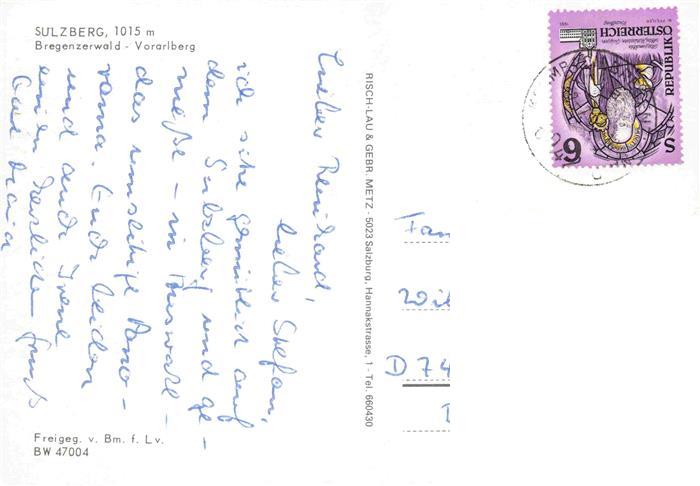 SULZBERG, 1015 m
Bregenzerwald - Vorarlberg
Lieber Reinhard,
lieber Stefan,
ich sitze gemütlich auf
dem Sulzberg und ge-
nieße - in
das Pano-
rama. Euch beiden
und auch Irene
einen herzlichen Gruß
Freigeg. v. Bm. f. Lv.
BW 47004
RISCH-LAU & GEBR. METZ - 5023 Salzburg, Hannakstrasse, 1 - Tel. 660430
REPUBLIK
ÖSTERREICH
S 6
Fam
Wil
D 74